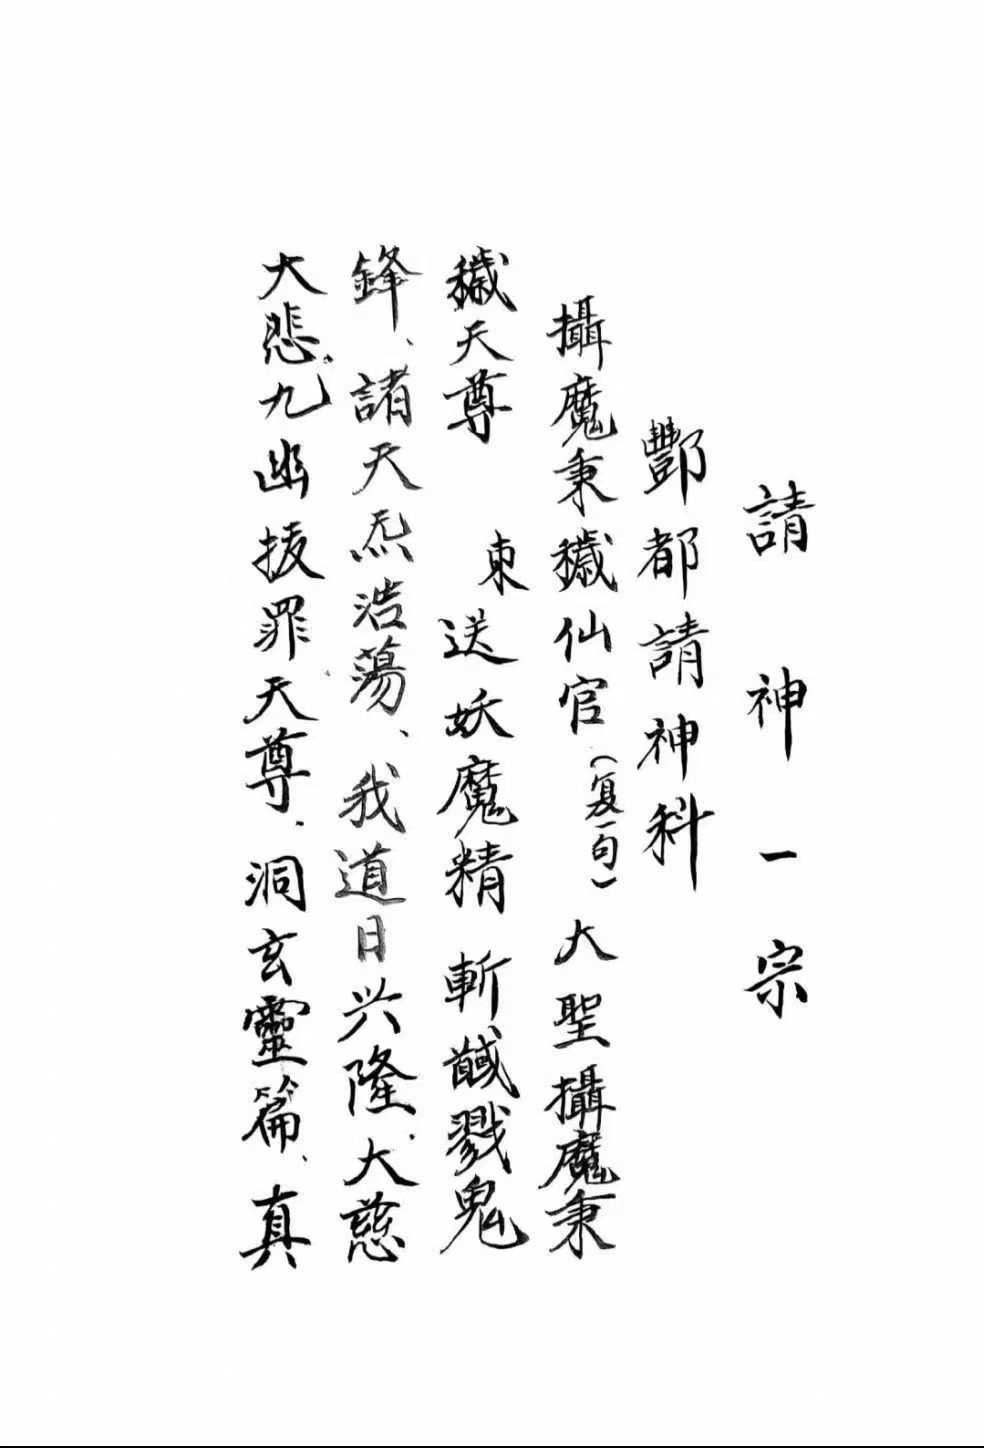 請神一宗
酆都請神科
攝魔秉穢仙官（复一句）大聖攝魔秉
穢天尊 束送妖魔精 斬馘戮鬼
鋒、諸天炁浩蕩、我道日兴隆、大慈
大悲、九幽拔罪天尊、洞玄靈篇、真